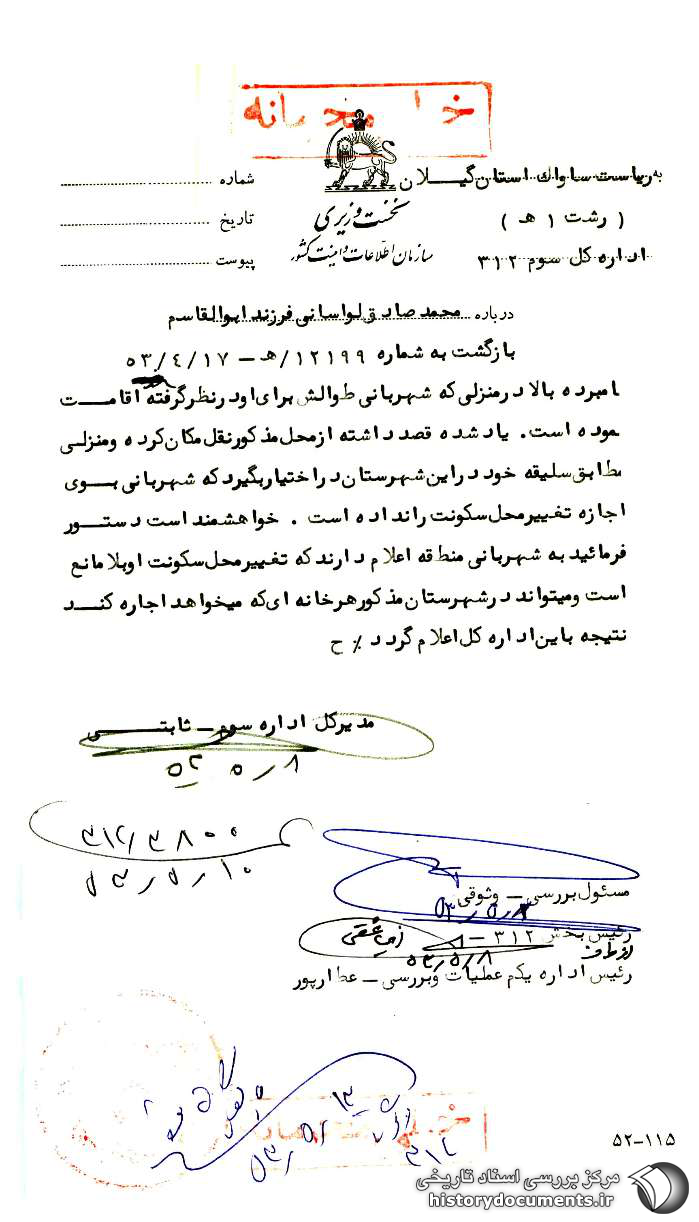 خیلی محرمانه
به ریاست ساواک استان گیلان
( رشت ۱ هـ )
اداره کل سوم ۳۱۲
نخست وزیری
سازمان اطلاعات و امنیت کشور
شماره
تاریخ
پیوست
درباره محمد صادق لواسانی فرزند ابوالقاسم
بازگشت به شماره ۱۲۱۹۹/هـ - ۵۳/۴/۱۷
نامبرده بالا در منزلی که شهربانی طوالش برای او در نظر گرفته اقامت
نموده است. یاد شده قصد داشته از محل مذکور نقل مکان کرده و منزلی
مطابق سلیقه خود در این شهرستان در اختیار بگیرد که شهربانی بوی
اجازه تغییر محل سکونت را نداده است . خواهشمند است دستور
فرمائید به شهربانی منطقه اعلام دارند که تغییر محل سکونت او بلامانع
است و میتواند در شهرستان مذکور هر خانه ای که میخواهد اجاره کند
نتیجه باین اداره کل اعلام گردد ٪ ح
مدیرکل اداره سوم - ثابتی
۵۳/۵/۸
۳۱۲/۳۸۰۰
۵۳/۵/۱۰
مسئول بررسی - وثوقی
رئیس بخش ۳۱۲ -
از طرف
۵۳/۵/۸
رئیس اداره یکم عملیات و بررسی - عطارپور
۳۱۲
۵۲-۱۱۵
مرکز بررسی اسناد تاریخی
historydocuments.ir